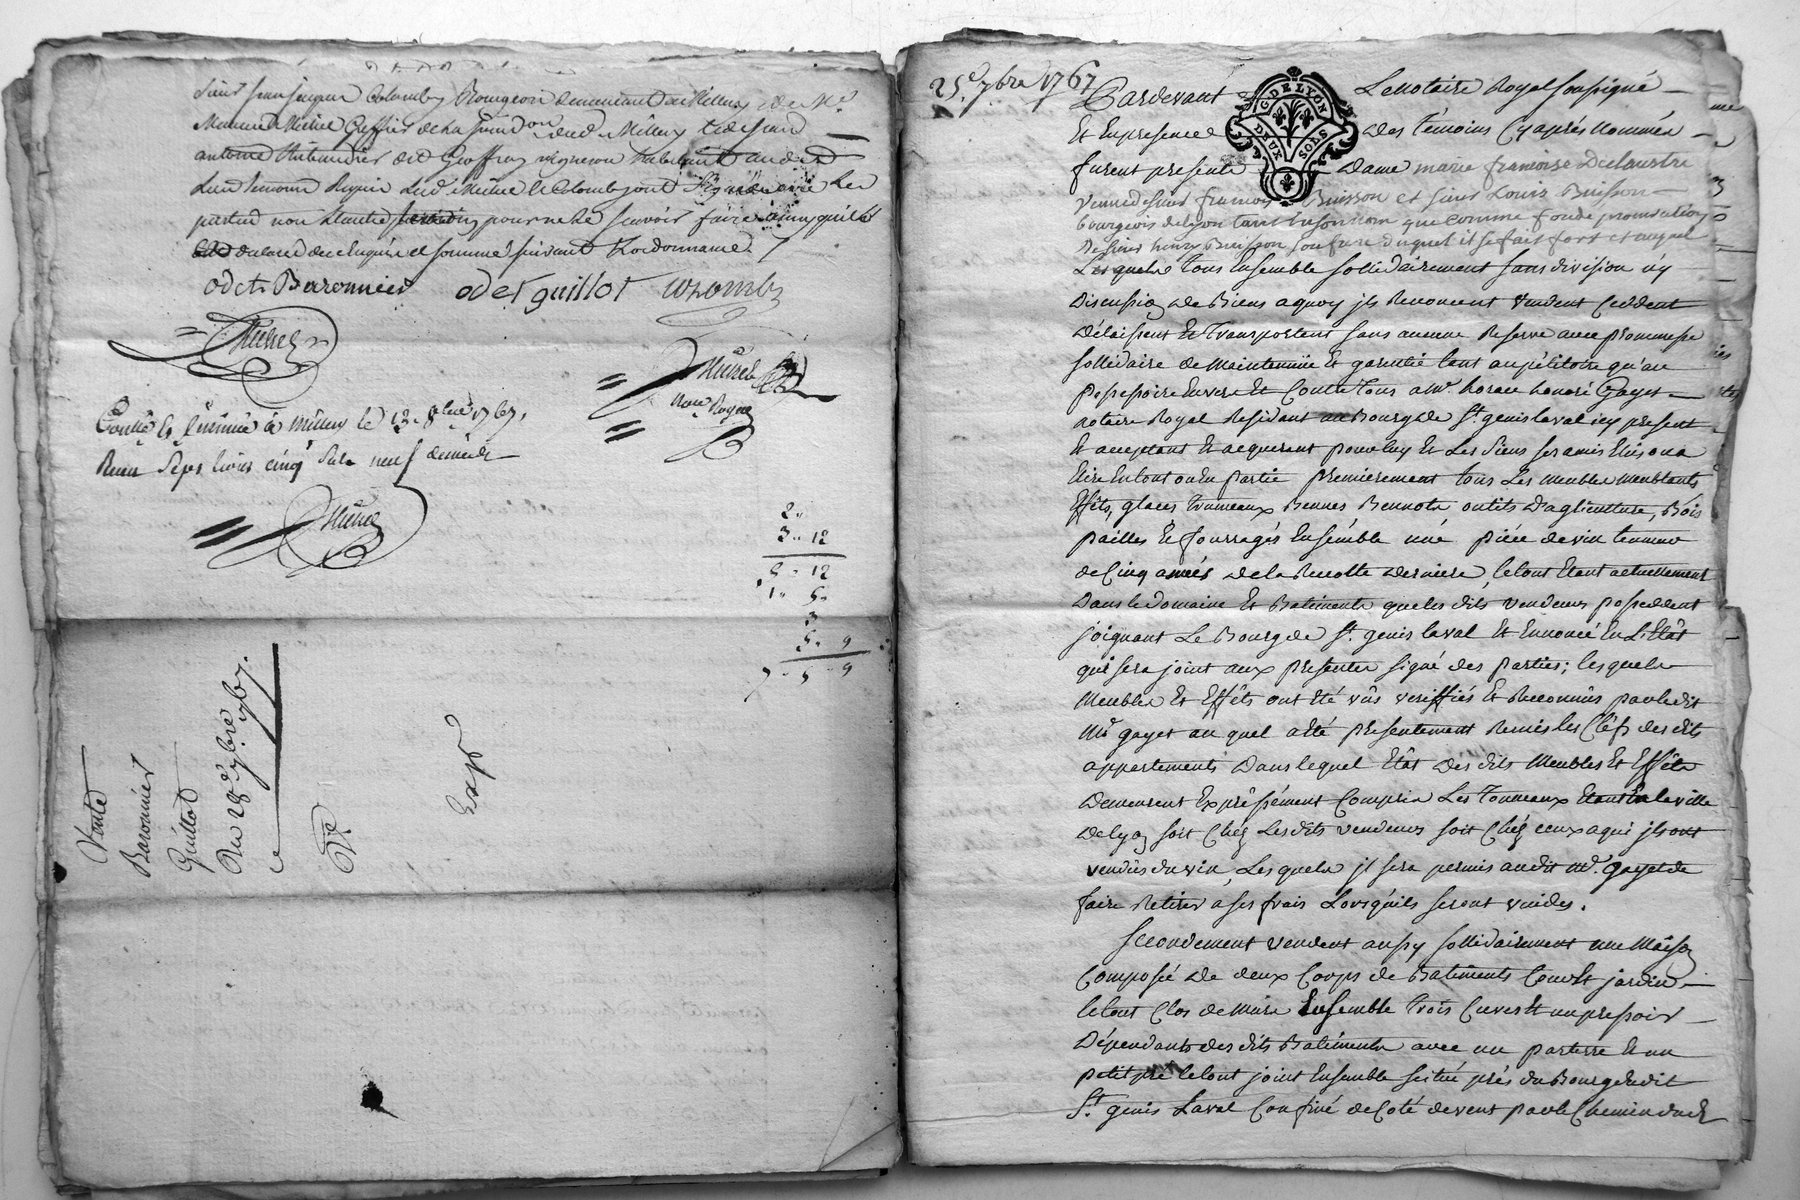 Sieur Jean jacques Colomby Bourgeois demeurant a Millery & de Mr
antoine dit Geoffray vigneron habitant audit
Lieu temoins Requis Led. Michel & Colomby ont Signé avec les
parties non pour ne le scavoir faire ainsy quils
ont declaré de ce Enquis et sommés suivant Lordonnance /
odet Baronnier odet guillot colomby
Michel
Michel
Nore Royal
Contlé & Insinué à Millery le 13. 8bre 1767.
Reçu Sept livres cinq sols neuf deniers
Michel
2"
3 " 12
5 " 12
1 " 5"
3
5 " 9
7 " 5 " 9
Vente
Baronnier
Guillot
Du 28e 7bre 1767.
Expé
25e 7bre 1767
Pardevant Le Notaire Royal soussigné
G. DE LYON
DEUX SOLS
Et En presence des témoins Cy après Nommés
furent presents Dame marie francoise Delaustre
veuve de sieur francois Buisson et sieur Louis Buisson
bourgeois de lyon tant En son nom que comme fondé procuration
De sieur henry Buisson son frere duquel il se fait fort et auquel
Lesquels Tous Ensemble sollidairement sans division n'y
Discussion de Biens a quoy ils Renoncent vendent Ceddent
Délaissent Et Transportent sans aucune Reserve avec promesse
sollidaire de Maintenüe Et garentie tant au pétitoire qu'au
possessoire Envers Et Contre Tous a Mr. horace honoré Gayet
notaire Royal Residant au Bourg de St. genis laval icy present
Et acceptant Et acquerant pour luy Et Les Siens ses amis Elus ou a
Elire En tout ou En Partie premierement Tous Les meubles meublants
Effêts, glaces Trumeaux Bennes Bennots outils D'agliculture, Bois
pailles Et fourragés Ensémble une piéce de vin tenant
de Cinq anées de la Recolte derniere, le tout Etant actuellement
Dans le Domaine Et Batiments que les dits vendeurs possedent
joignant Le Bourg de St. genis laval Et Ennoncé En L'Etât
qui sera joint aux presentes signé des parties; lesquels
Meubles Et Effêts ont été vûs veriffiés Et Reconnûs par le dit
Mr. gayet au quel a été presentement Remis les Cléfs des dits
appartements Dans lequel Etât des dits Meubles Et Effêts
Demeurent Expréssément Compris Les Tonneaux Etant En la ville
De lyon soit Chéz Lesdits vendeurs soit Chéz ceux a qui ils ont
vendûs du vin, Lesquels il sera permis audit Mr. gayet de
faire Retirer a ses frais Lorsquils seront vuides.
Secondement vendent aussy sollidairement une Maison
Composée de deux Corps de Batiments Cour Et jardin
le tout Clos de Murs Ensemble Trois Cuves Et un pressoir
Dépendants des dits Batiments avec un parterre Et un
petit pré le tout joint Ensemble scitué prés du Bourg dudit
St. genis Laval Confiné de Coté de vent par le Chemin dud.